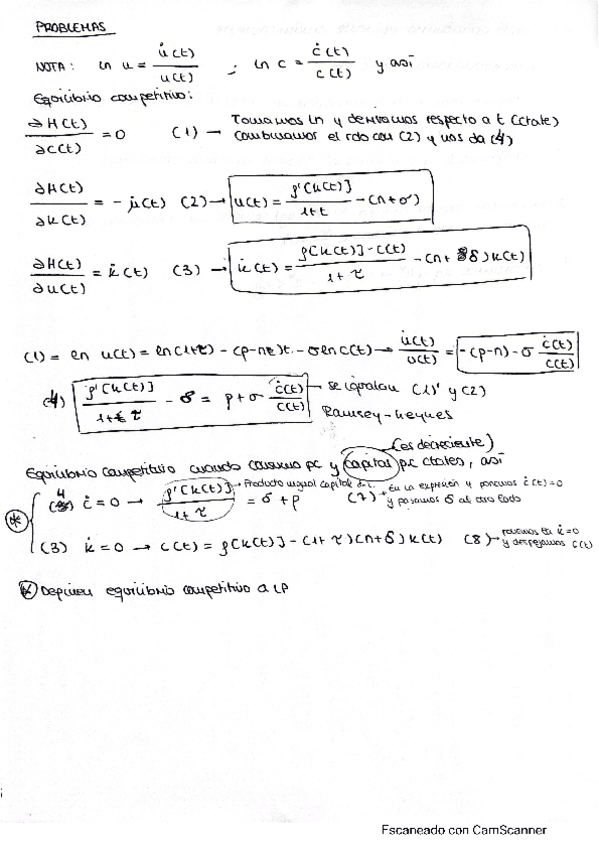 PROBLEMAS
NOTA: ln u = u̇(t)/u(t) ; ln c = ċ(t)/c(t) y así
Equilibrio competitivo:
∂H(t)/∂c(t) = 0 (1) → Tomamos ln y derivamos respecto a t (ctate)
Combinamos el rdo con (2) y nos da (4)
∂H(t)/∂k(t) = - μ̇(t) (2) → u(t) = f'[k(t)]/1+t - (n+σ)
∂H(t)/∂u(t) = k̇(t) (3) → k̇(t) = f[k(t)] - c(t)/1+τ - (n+δ)k(t)
(1) = ln u(t) = ln(1+τ) - (p-n)t - σ ln c(t) → u̇(t)/u(t) = -(p-n) - σ ċ(t)/c(t)
(4) f'[k(t)]/1+τ - δ = p + σ ċ(t)/c(t) → se igualan (1)' y (2)
Ramsey-Keynes
(es decreciente)
Equilibrio competitivo cuando consumo pc y capital pc ctates, así
(4) ċ = 0 → f'[k(t)]/1+τ = δ + p (7) → En la expresión 4 ponemos ċ(t) = 0
y pasamos δ al otro lado
→ Producto marginal capital
(3) k̇ = 0 → c(t) = f[k(t)] - (1+τ)(n+δ)k(t) (8) → ponemos k̇ = 0
y despejamos c(t)
(*) Definen equilibrio competitivo a LP
Escaneado con CamScanner